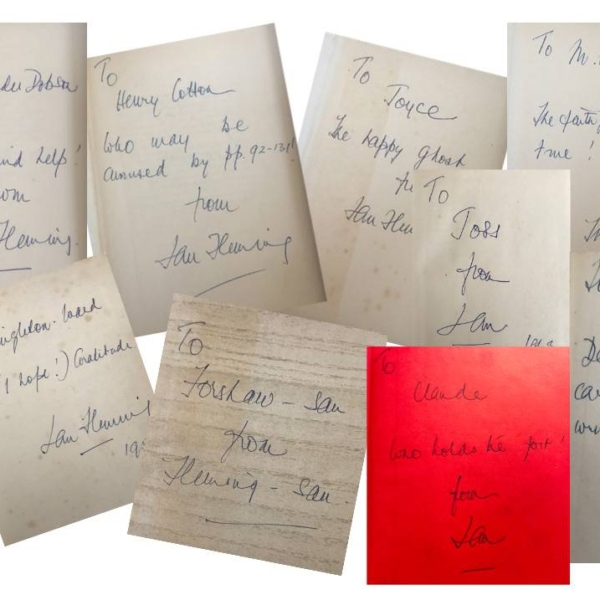 Dobson
kind help!
from
Fleming.
To
Henry Cotton
who may be
amused by pp. 92-131!
from
Ian Fleming
To Joyce
The happy ghost
Ian
To M.
The
true!
To
Joss
from
Ian
Singleton-Ward
I hope!) Gratitude
Ian Fleming
To
Forshaw - San
from
Fleming - San.
To
Claude
who holds the fort!
from
Ian